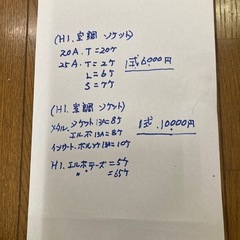 (H1. 空調 ソケット)
20A. T = 20ケ
25A. T = 2ケ
L = 6ケ
S = 7ケ
1式 6000円
(H1. 空調 ソケット)
メタル. ソケット 13A = 8ケ
エルボ 13A = 8ケ
インサート. ボルツケ 13A = 10ケ
1式. 10000円
H1. エルボ チーズ = 5ケ
〃 〃 = 65ケ